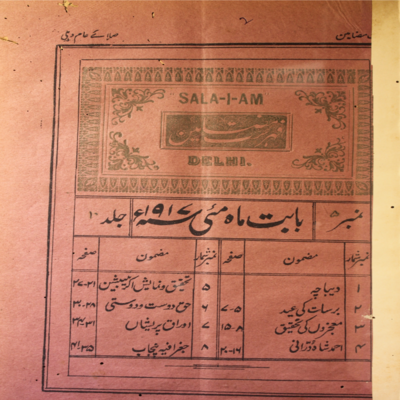 صلائے عام دہلی
SALA-I-AM
فہرست مضامین
DELHI.
نمبر ۵ بابت ماہ مئی ۱۹۱۷ء جلد ۱۰
نمبر شمار مضمون صفحہ نمبر شمار مضمون صفحہ
۱ دیباچہ ۵ تحقیق و نمایش
۲ برسات کی عید ۵-۷ ۶ حق دوست و دوستی ۲۸-۳۰
۳ معجزوں کی تحقیق ۸-۱۵ ۷ اوراق پریشاں
۴ احمد شاہ درانی ۱۶-۲۰ ۸ جغرافیہ پنجاب